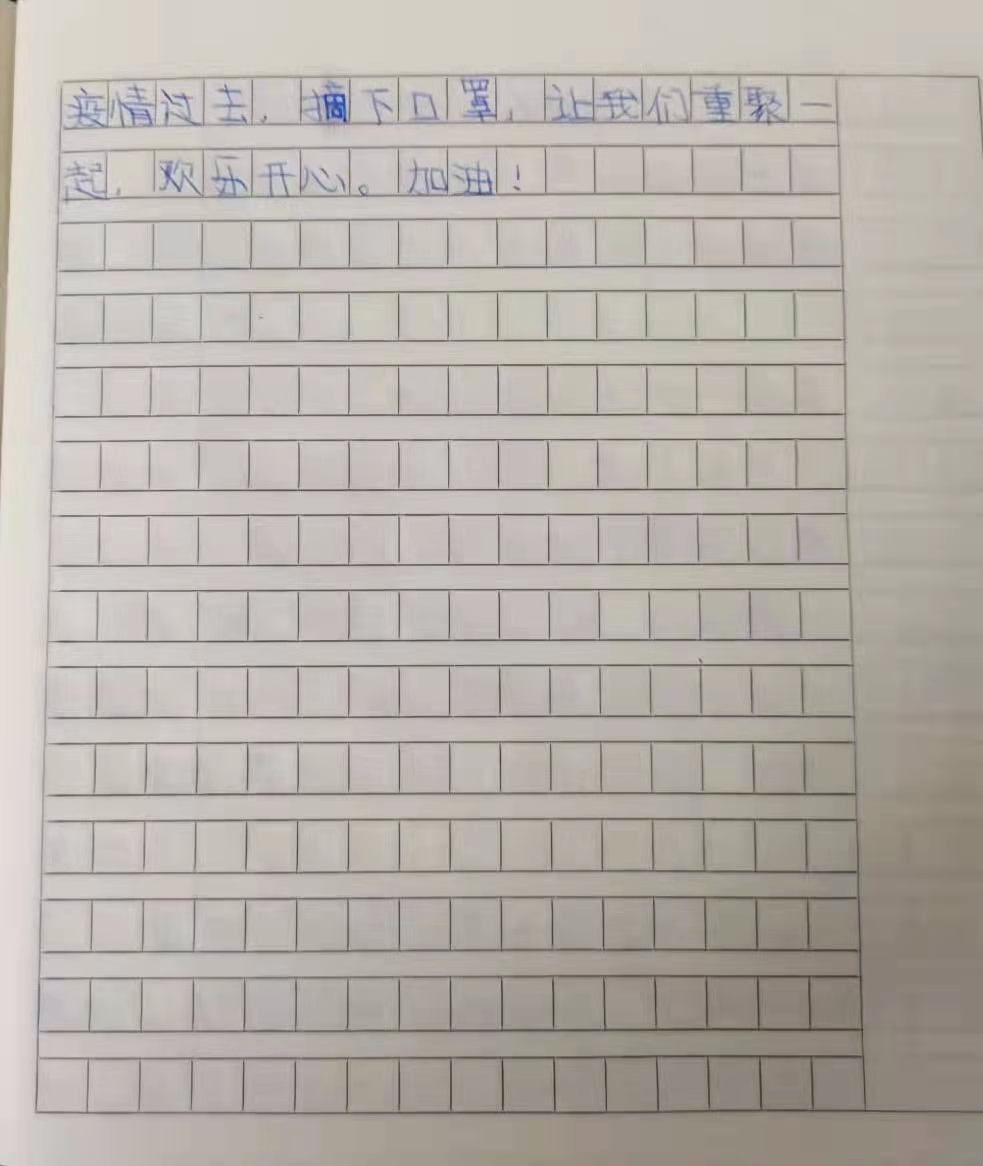 疫情过去，摘下口罩，让我们重聚一
起，欢乐开心。加油！